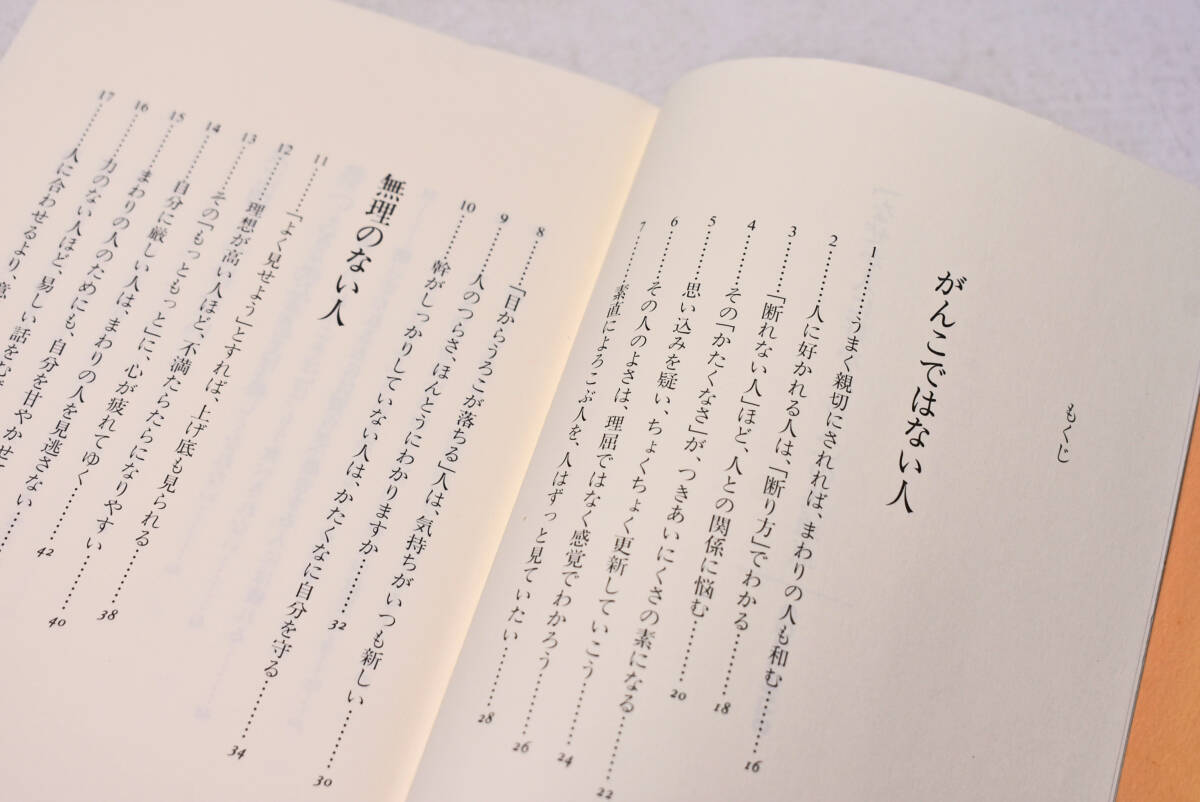 もくじ
がんこではない人
1……うまく親切にされれば、まわりの人も和む……16
2……人に好かれる人は、「断り方」でわかる……18
3……「断れない人」ほど、人との関係に悩む……20
4……その「かたくなさ」が、つきあいにくさの素になる……22
5……思い込みを疑い、ちょくちょく更新していこう……24
6……その人のよさは、理屈ではなく感覚でわかろう……26
7……素直によろこぶ人を、人はずっと見ていたい……28
8……「目からうろこが落ちる」人は、気持ちがいつも新しい……30
9……人のつらさ、ほんとうにわかりますか……32
10……幹がしっかりしていない人は、かたくなに自分を守る……34
無理のない人
11……「よく見せよう」とすれば、上げ底も見られる……38
12……理想が高い人ほど、不満たらたらになりやすい……40
13……その「もっともっと」に、心が疲れてゆく……42
14……自分に厳しい人は、まわりの人を見逃さない……
15……まわりの人のためにも、自分を甘やかせ
16……力のない人ほど、易しい話をむず
17……人に合わせるより、意